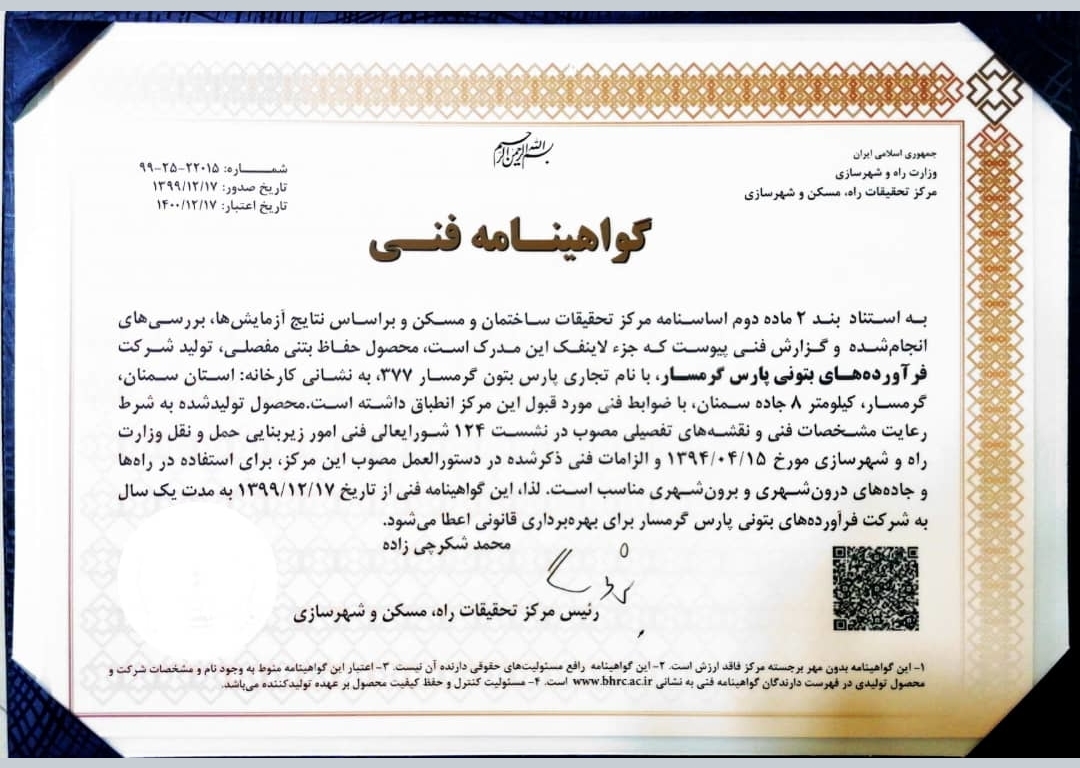 بسم الله الرحمن الرحیم
جمهوری اسلامی ایران
وزارت راه و شهرسازی
مرکز تحقیقات راه، مسکن و شهرسازی
شمـــــاره: ۲۲۰۱۵-۲۵-۹۹
تاریخ صدور: ۱۳۹۹/۱۲/۱۷
تاریخ اعتبار: ۱۴۰۰/۱۲/۱۷
گواهینـــامه فنـــی
به استناد بند ۲ ماده دوم اساسنامه مرکز تحقیقات ساختمان و مسکن و براساس نتایج آزمایش‌ها، بررسی‌های
انجام‌شده و گزارش فنی پیوست که جزء لاینفک این مدرک است، محصول حفاظ بتنی مفصلی، تولید شرکت
فرآورده‌های بتونی پارس گرمسار، با نام تجاری پارس بتون گرمسار ۳۷۷، به نشانی کارخانه: استان سمنان،
گرمسار، کیلومتر ۸ جاده سمنان، با ضوابط فنی مورد قبول این مرکز انطباق داشته است.محصول تولیدشده به شرط
رعایت مشخصات فنی و نقشه‌های تفصیلی مصوب در نشست ۱۲۴ شورایعالی فنی امور زیربنایی حمل و نقل وزارت
راه و شهرسازی مورخ ۱۳۹۴/۰۴/۱۵ و الزامات فنی ذکرشده در دستورالعمل مصوب این مرکز، برای استفاده در راه‌ها
و جاده‌های درون‌شهری و برون‌شهری مناسب است. لذا، این گواهینامه فنی از تاریخ ۱۳۹۹/۱۲/۱۷ به مدت یک سال
به شرکت فرآورده‌های بتونی پارس گرمسار برای بهره‌برداری قانونی اعطا می‌شود.
محمد شکرچی زاده
رئیس مرکز تحقیقات راه، مسکن و شهرسازی
۱- این گواهینامه بدون مهر برجسته مرکز فاقد ارزش است. ۲- این گواهینامه رافع مسئولیت‌های حقوقی دارنده آن نیست. ۳- اعتبار این گواهینامه منوط به وجود نام و مشخصات شرکت و
محصول تولیدی در فهرست دارندگان گواهینامه فنی به نشانی www.bhrc.ac.ir است. ۴- مسئولیت کنترل و حفظ کیفیت محصول بر عهده تولیدکننده می‌باشد.